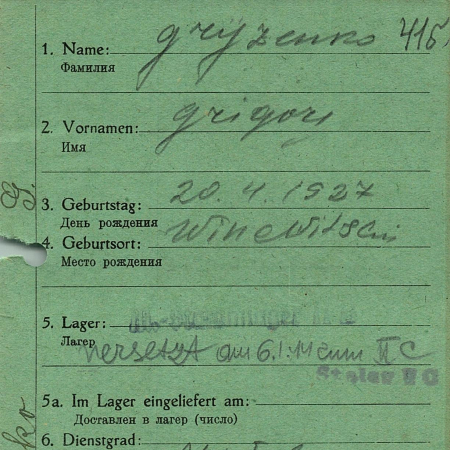 1. Name: Gryzenko 416
Фамилия
2. Vornamen: Grigori
Имя
3. Geburtstag: 20.4.1927
День рождения
4. Geburtsort:
Место рождения
5. Lager:
Лагер
versetzt am 6.1.44 zum II C
Stalag II C
5a. Im Lager eingeliefert am:
Доставлен в лагер (число)
6. Dienstgrad: